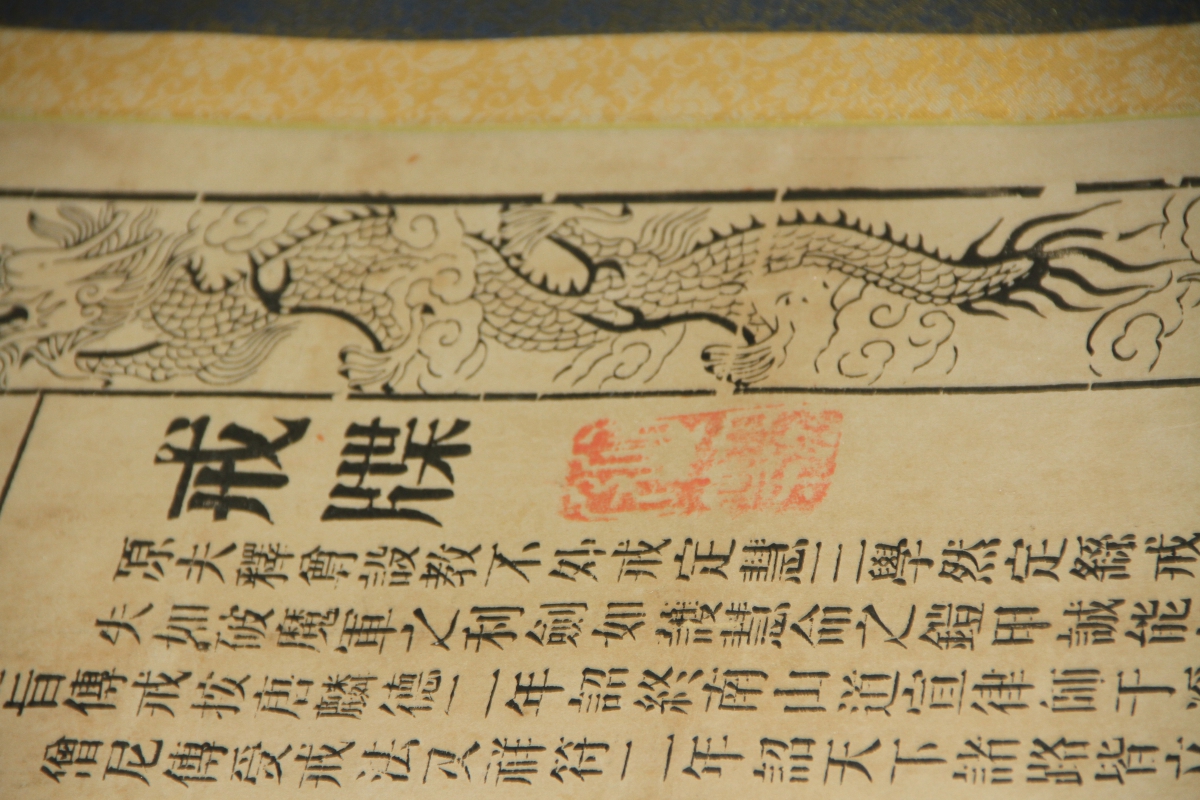 戒牒
原夫釋尊設教不外戒定慧三學然定戒
失如破魔軍之利劍如護慧命之鎧甲誠能
旨傳戒按唐麟德二年詔終南山道宣律師于
僧尼傳受戒法及祥符二年詔天下諸路皆立